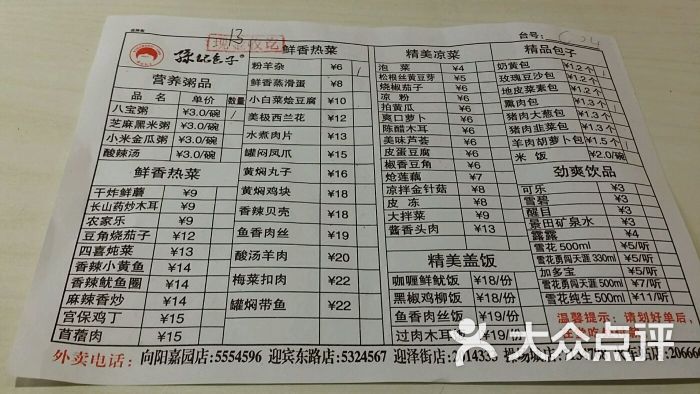 13
现金收讫
孫记包子
台号:
营养粥品
品 名 单价 数量
八宝粥 ¥3.0/碗 1
芝麻黑米粥 ¥3.0/碗
小米金瓜粥 ¥3.0/碗
酸辣汤 ¥3.0/碗
鲜香热菜
干炸鲜蘑 ¥9
长山药炒木耳 ¥9
农家乐 ¥9
豆角烧茄子 ¥12
四喜炖菜 ¥13
香辣小黄鱼 ¥14
香辣鱿鱼圈 ¥14
麻辣香炒 ¥14
宫保鸡丁 ¥15
苜蓿肉 ¥15
鲜香热菜
粉羊杂 ¥6 1
鲜香蒸滑蛋 ¥8
小白菜烩豆腐 ¥10
美极西兰花 ¥12
水煮肉片 ¥13
罐焖凤爪 ¥15
黄焖丸子 ¥16
黄焖鸡块 ¥18
香辣贝壳 ¥18
鱼香肉丝 ¥19
酸汤羊肉 ¥20
梅菜扣肉 ¥22
罐焖带鱼 ¥22
精美凉菜
泡 菜 ¥4
松根丝黄豆芽 ¥5
烧椒茄子 ¥6
凉 粉 ¥6
拍黄瓜 ¥6
爽口萝卜 ¥6
陈醋木耳 ¥6
美味芦荟 ¥6
皮蛋豆腐 ¥6
椒香豆角 ¥6
炝莲藕 ¥7
凉拌金针菇 ¥8
皮 冻 ¥8
大拌菜 ¥9
酱香头肉 ¥13
精美盖饭
咖喱鲜鱿饭 ¥18/份
黑椒鸡柳饭 ¥18/份
鱼香肉丝饭 ¥19/份
过肉木耳 ¥19/份
精品包子
奶黄包 ¥1.2个
玫瑰豆沙包 ¥1.2个
地皮菜素包 ¥1.2个
熏肉包 ¥1.3个
猪肉大葱包 ¥1.3个
猪肉韭菜包 ¥1.3个
羊肉胡萝卜包 ¥1.5个
米 饭 ¥2.0/碗
劲爽饮品
可乐 ¥3
雪碧 ¥3
醒目 ¥3
景田矿泉水 ¥3
露露 ¥4
雪花 500ml ¥5/听
雪花勇闯天涯 330ml ¥5/听
加多宝 ¥5/听
雪花勇闯天涯 500ml ¥7/听
雪花纯生 500ml ¥11/听
温馨提示:请划好单后,
外卖电话:向阳嘉园店:5554596 迎宾东路店:5324567 迎泽街店:
大众点评